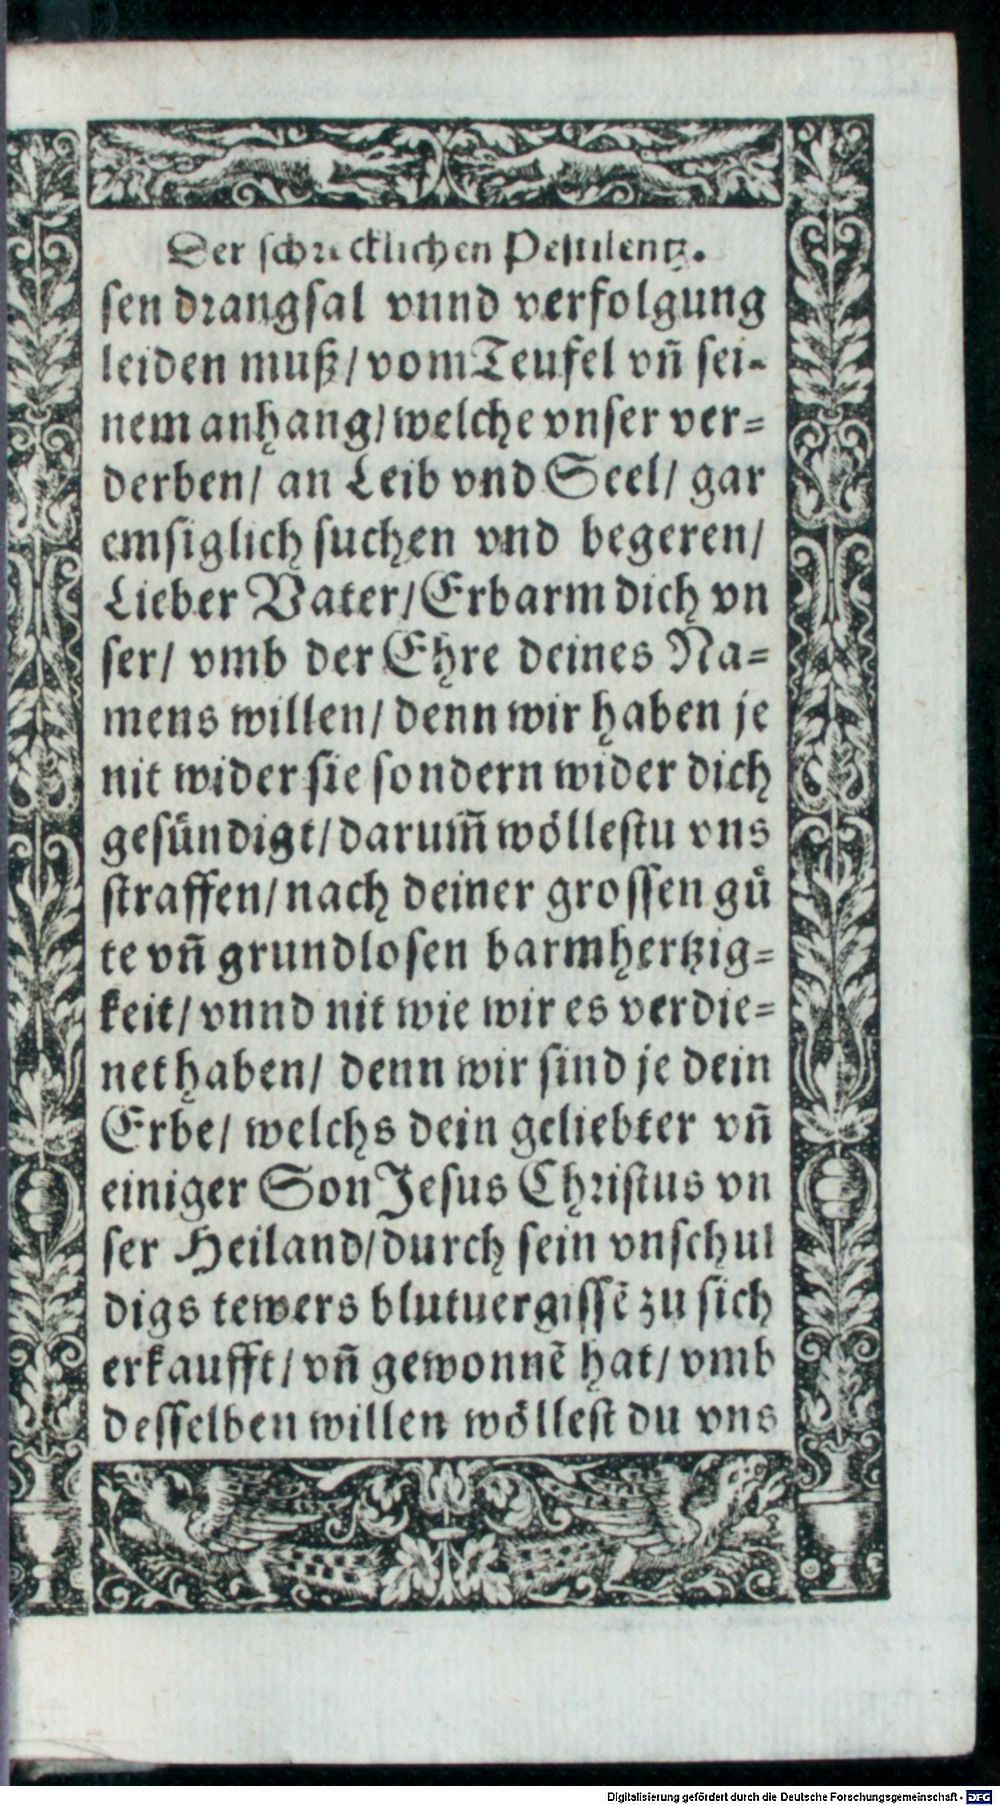 Der schrecklichen Pestilentz.
sen drangsal vnnd verfolgung
leiden muß/ vom Teufel vñ sei-
nem anhang/ welche vnser ver=
derben/ an Leib vnd Seel/ gar
emsiglich suchen vnd begeren/
Lieber Vater/ Erbarm dich vn
ser/ vmb der Ehre deines Na=
mens willen/ denn wir haben je
nit wider sie sondern wider dich
gesündigt/ darum̃ wöllestu vns
straffen/ nach deiner grossen gü
te vñ grundlosen barmhertzig=
keit/ vnnd nit wie wir es verdie=
net haben/ denn wir sind je dein
Erbe/ welchs dein geliebter vñ
einiger Son Jesus Christus vn
ser Heiland/ durch sein vnschul
digs tewers blutuergissẽ zu sich
erkaufft/ vñ gewonnẽ hat/ vmb
desselben willen wöllest du vns
Digitalisierung gefördert durch die Deutsche Forschungsgemeinschaft - DFG